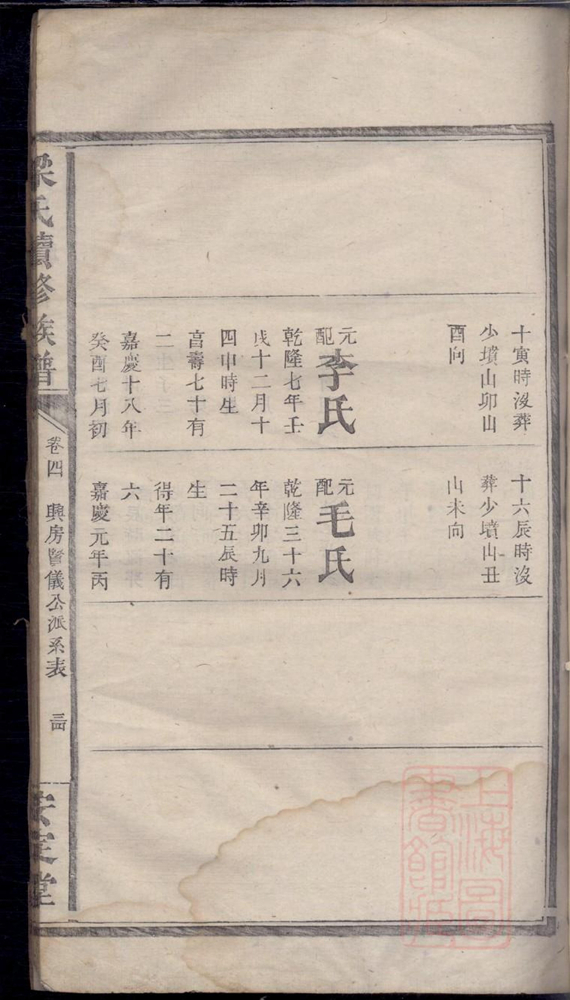 十寅時沒葬
少墳山卯山
酉向
元配李氏
乾隆七年壬
戌十二月十
四申時生
享壽七十有
二
嘉慶十八年
癸酉七月初
十六辰時沒
葬少墳山丑
山未向
元配毛氏
乾隆三十六
年辛卯九月
二十五辰時
生
得年二十有
六
嘉慶元年丙
梁氏續修族譜
卷四
興房暨儀公派系表
三四
安定堂
上海圖書館藏